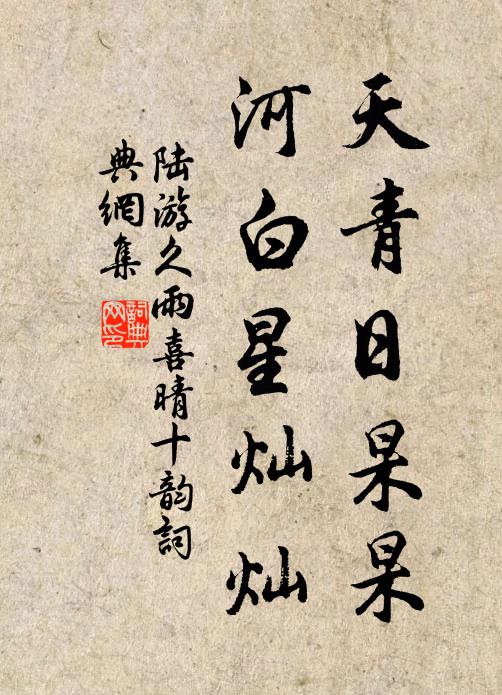 天青日杲杲
河白星灿灿
陆游久雨喜晴十韵詞
典網集
詞典
网印